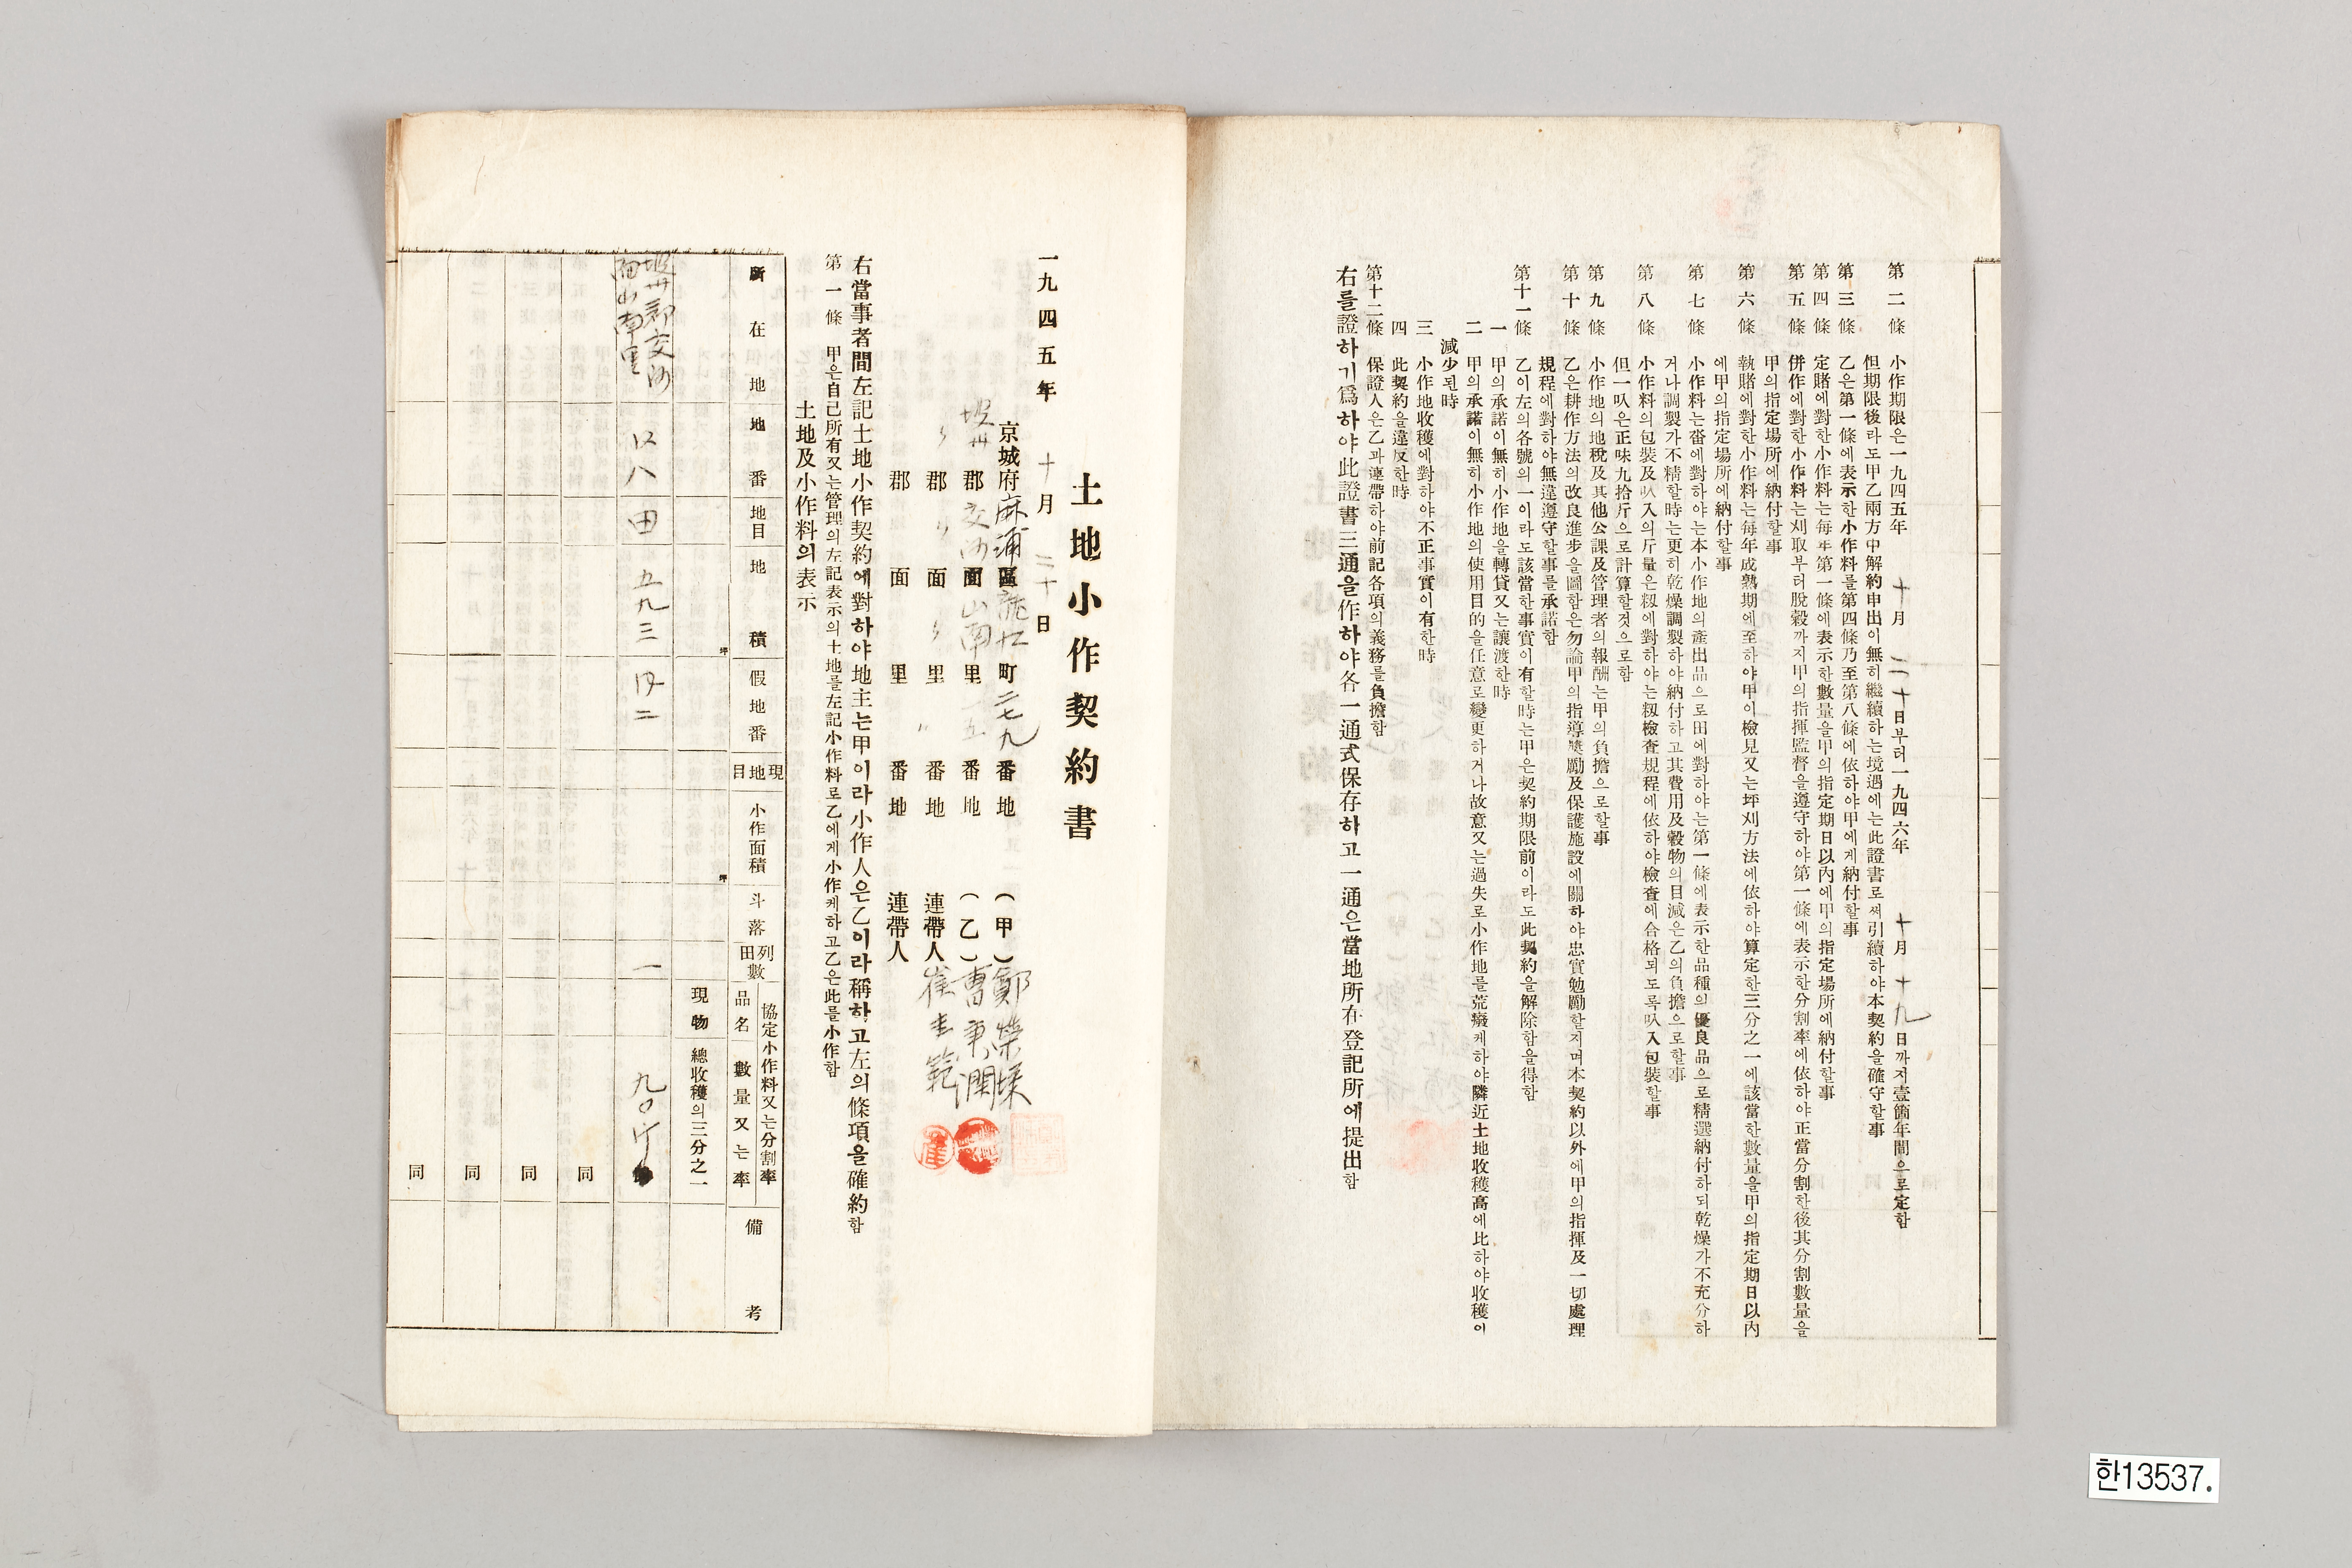 第二條 小作期限은一九四五年 十月 二十日부터一九四六年 十月 十九日까지壹箇年間으로定함
但期限後라도甲乙兩方中解約申出이無히繼續하는境遇에는此證書로써引續하야本契約을確守할事
第三條 乙은第一條에表示한小作料를第四條乃至第八條에依하야甲에게納付할事
第四條 定賭에對한小作料는每年第一條에表示한數量을甲의指定期日以內에甲의指定場所에納付할事
第五條 併作에對한小作料는刈取부터脫穀까지甲의指揮監督을遵守하야第一條에表示한分割率에依하야正當分割한後其分割數量을
甲의指定場所에納付할事
第六條 執賭에對한小作料는每年成熟期에至하야甲이檢見又는坪刈方法에依하야算定한三分之一에該當한數量을甲의指定期日以內
에甲의指定場所에納付할事
第七條 小作料는畓에對하야는本小作地의產出品으로田에對하야는第一條에表示한品種의優良品으로精選納付하되乾燥가不充分하
거나調製가不精할時는更히乾燥調製하야納付하고其費用及穀物의目減은乙의負擔으로할事
第八條 小作料의包裝及叺入의斤量은籾에對하야는籾檢査規程에依하야檢査에合格되도록叺入包裝할事
但一叺은正味九拾斤으로計算할것으로함
第九條 小作地의地稅及其他公課及管理者의報酬는甲의負擔으로할事
第十條 乙은耕作方法의改良進步을圖함은勿論甲의指導奬勵及保護施設에關하야忠實勉勵할지며本契約以外에甲의指揮及一切處理
規程에對하야無違遵守할事를承諾함
第十一條 乙이左의各號의一이라도該當한事實이有할時는甲은契約期限前이라도此契約을解除함을得함
一 甲의承諾이無히小作地을轉貸又는讓渡한時
二 甲의承諾이無히小作地의使用目的을任意로變更하거나故意又는過失로小作地를荒癈케하야隣近土地收穫高에比하야收穫이
減少된時
三 小作地收穫에對하야不正事實이有한時
四 此契約을違反한時
第十二條 保證人은乙과連帶하야前記各項의義務를負擔함
右를證하기爲하야此證書三通을作하야各一通式保存하고一通은當地所在登記所에提出함
土地小作契約書
一九四五年 十月 二十日
京城府麻浦區龍江町二七九番地 (甲) 鄭
坡州郡交河面山南里 五番地 (乙) 曹秉
〃郡〃面〃里〃番地 連帶人 崔圭範
郡 面 里 番地 連帶人
右當事者間左記土地小作契約에對하야地主는甲이라小作人은乙이라稱하고左의條項을確約함
第一條 甲은自己所有又는管理의左記表示의土地를左記小作料로乙에게小作케하고乙은此를小作함
土地及小作料의表示
所在地 地番 地目 地積 坪 假地番 現地目 小作面積 坪 斗落 列田數 協定小作料又는分割率 品名 數量又는率 備考
現物 總收穫의三分之一
坡州郡交河面山南里 四八 田 五九三 四二 一 九〇斤
同
同
同
同
한13537.